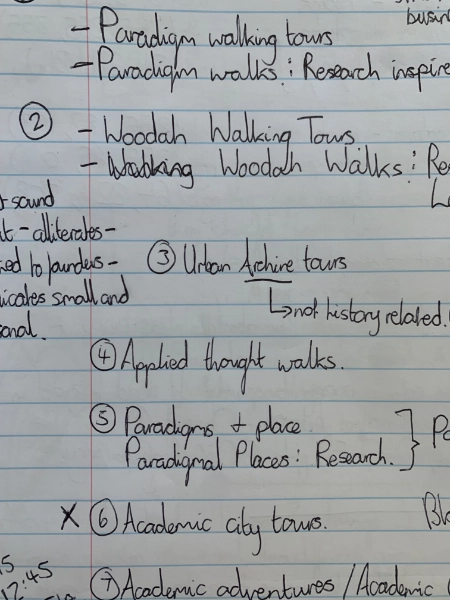 busin
- Paradigm walking tours
- Paradigm walks: Research inspire
② - Woodah Walking Tours
- Woodah Walks: Re
sound
- alliterates -
ied to founders -
icates small and
onal.
③ Urban Archive tours
↳ not history related.
④ Applied thought walks.
⑤ Paradigms + place
Paradigmal Places: Research. } Pa
X ⑥ Academic city tours.
⑦ Academic adventures / Academic